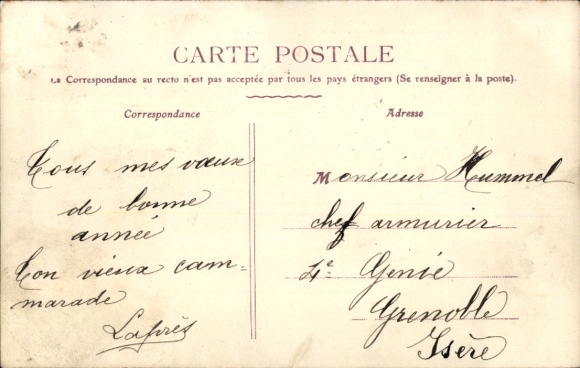 CARTE POSTALE
La Correspondance au recto n'est pas acceptée par tous les pays étrangers (Se renseigner à la poste).
Correspondance
Tous mes vœux
de bonne
année
Ton vieux cam=
marade
Laprès
Adresse
Monsieur Hummel
chef armurier
4e Génie
Grenoble
Isère